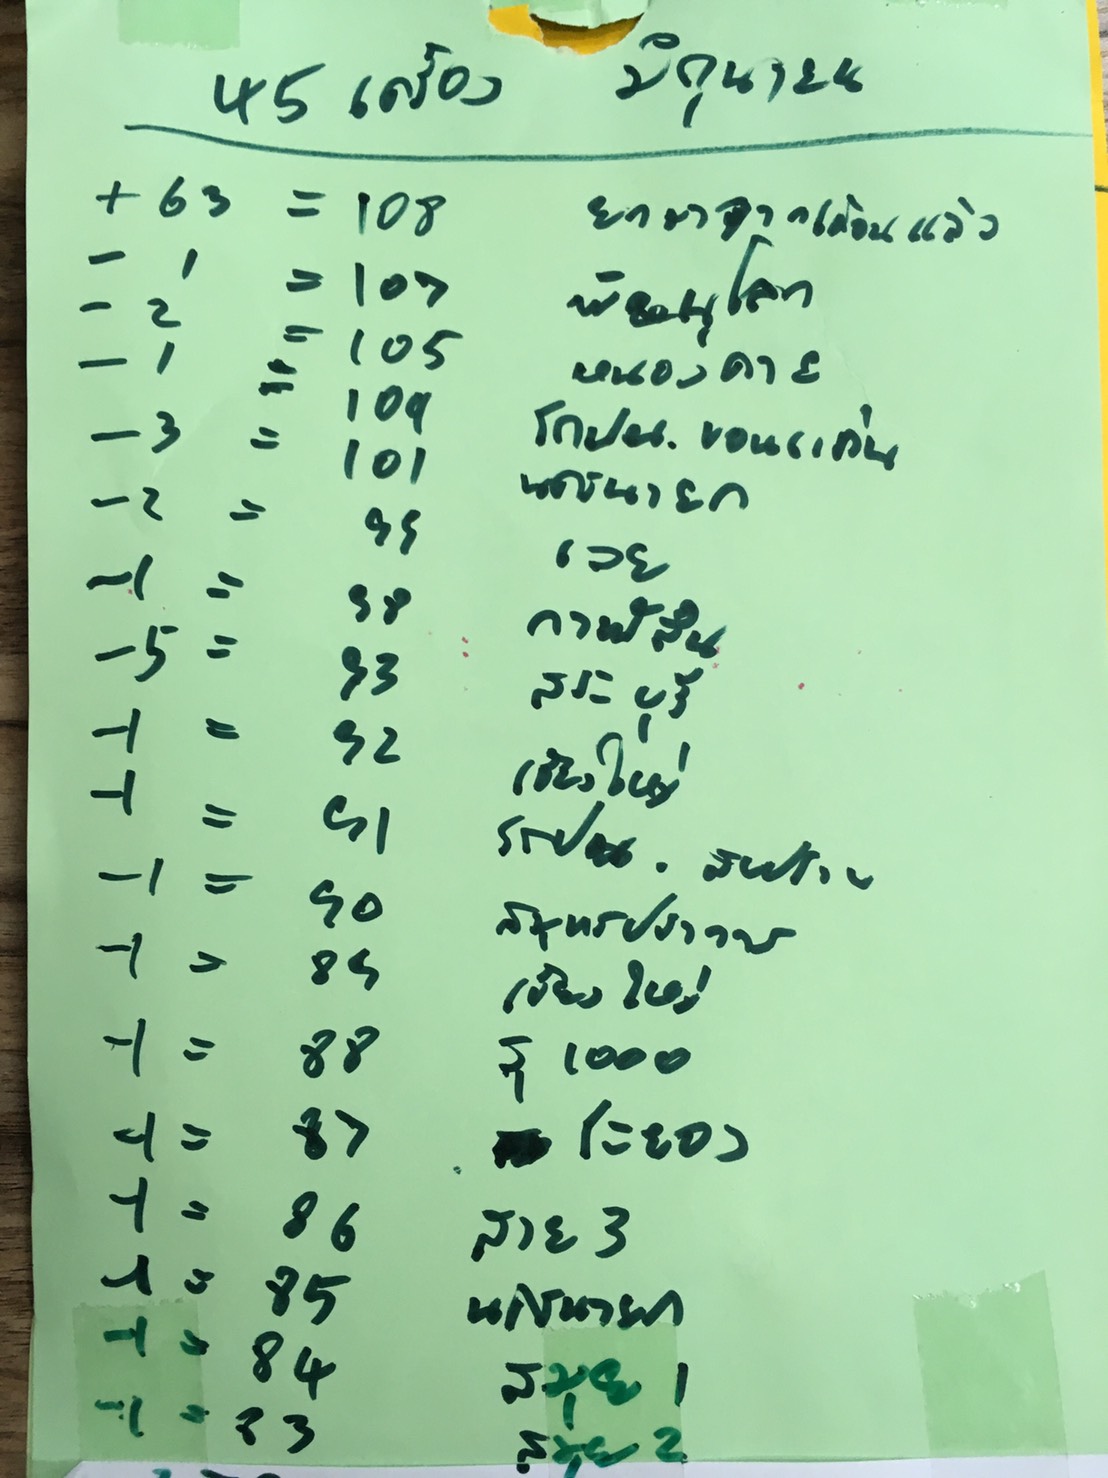 45 เครื่อง มิถุนายน
+ 63 = 108 ยกมาจากเดือนแล้ว
- 1 = 107 พิษณุโลก
- 2 = 105 หนองคาย
- 1 = 104 รักปน. ขอนแก่น
- 3 = 101 นครนายก
- 2 = 99 เลย
- 1 = 98 กาฬสินธุ์
- 5 = 93 สระบุรี
- 1 = 92 เชียงใหม่
- 1 = 91 รักปน.
- 1 = 90 สมุทรปราการ
- 1 = 89 เชียงใหม่
- 1 = 88 สุ 1000
- 1 = 87 ระยอง
- 1 = 86 สาย 3
- 1 = 85 นครนายก
- 1 = 84 สมุย 1
- 1 = 83 สมุย 2